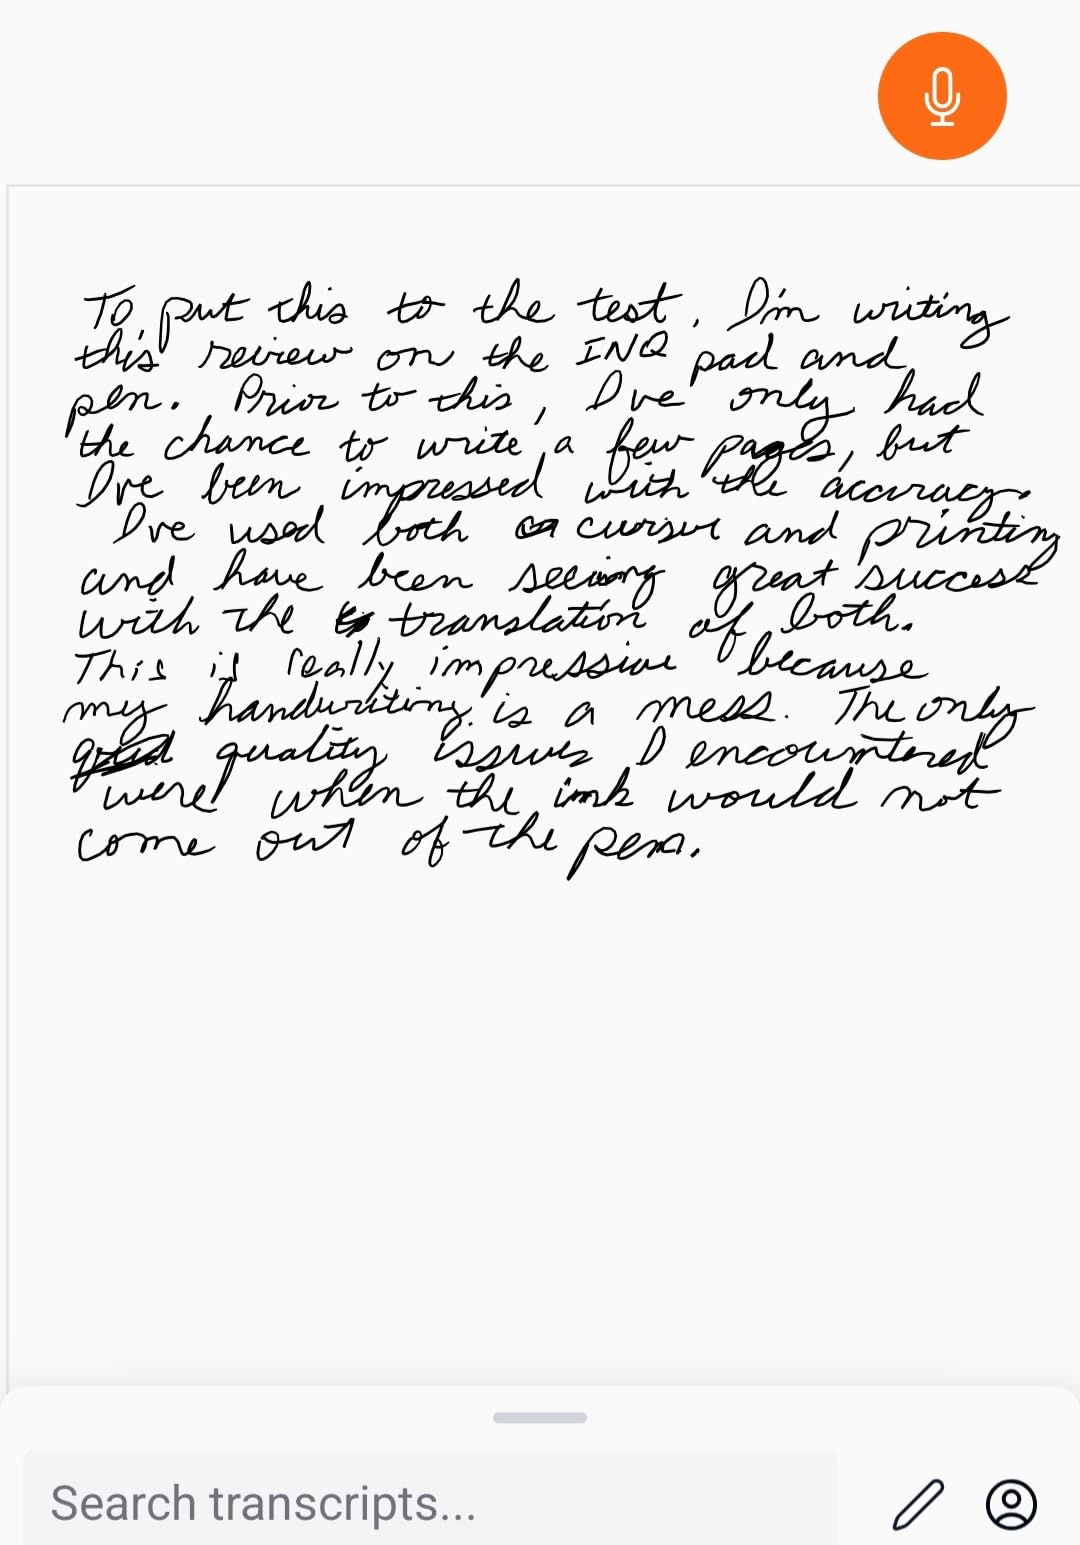 To put this to the test, I'm writing
this review on the INQ pad and
pen. Prior to this, I've only had
the chance to write a few pages, but
I've been impressed with the accuracy.
I've used both cursive and printing
and have been seeing great success
with the translation of both.
This is really impressive because
my handwriting is a mess. The only
quality issues I encountered
were when the ink would not
come out of the pen.
Search transcripts...